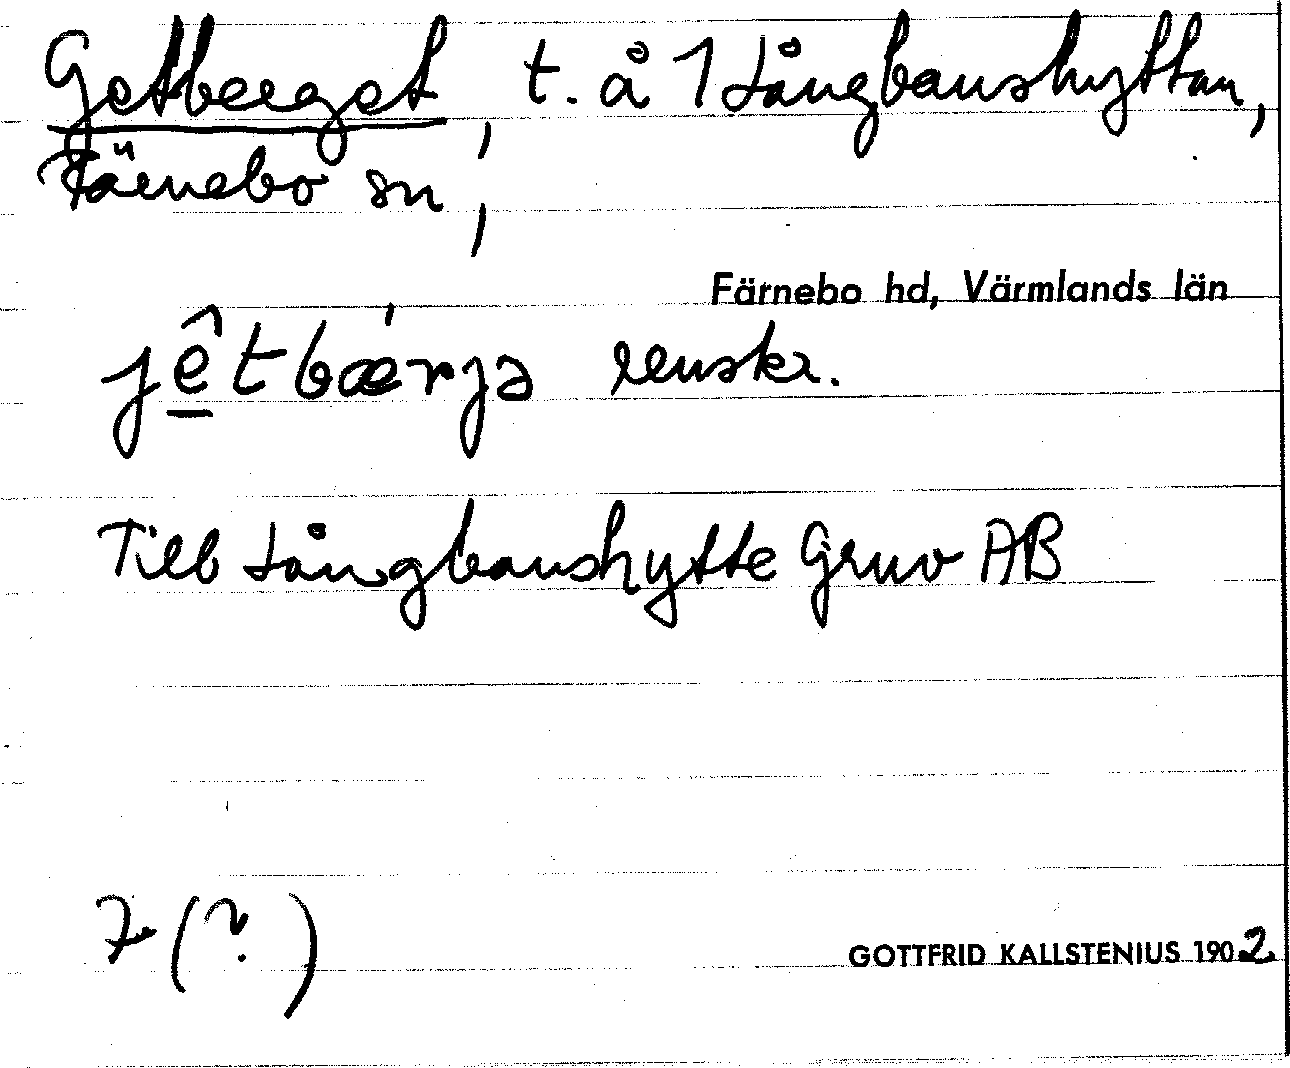 Getberget, t. å 1 Långbanshyttan,
Färnebo sn,
Färnebo hd, Värmlands län
jêtbǽrjə renskr.
Till Långbanshytte Gruv AB
7 (?)
GOTTFRID KALLSTENIUS 1902